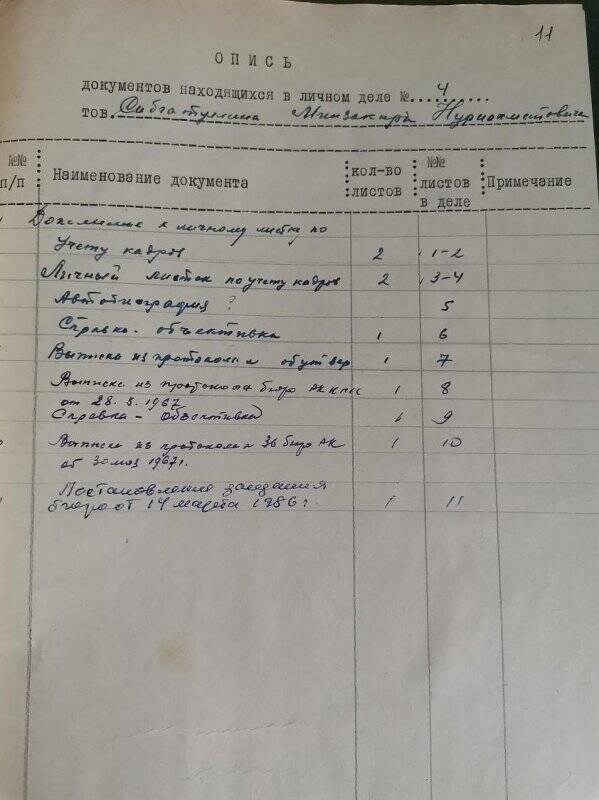 11
ОПИСЬ
документов находящихся в личном деле №. 4
тов. Сибгатуллина Минзакира Нуриахметовича
№№ п/п Наименование документа кол-во листов №№ листов в деле Примечание
к личному листку по
Учету кадров 2 1-2
Личный листок по учету кадров 2 3-4
Автобиография ? 5
Справка - объективка 1 6
Выписка из протокола 1 7
Выписка из протокола бюро 1 8
от 28. 3. 1967
Справка - Объективка 1 9
Выписка из протокола № 36 бюро АК 1 10
от 30 мая 1967г.
Постановление заседания
бюро от 14 марта 1986г. 1 11